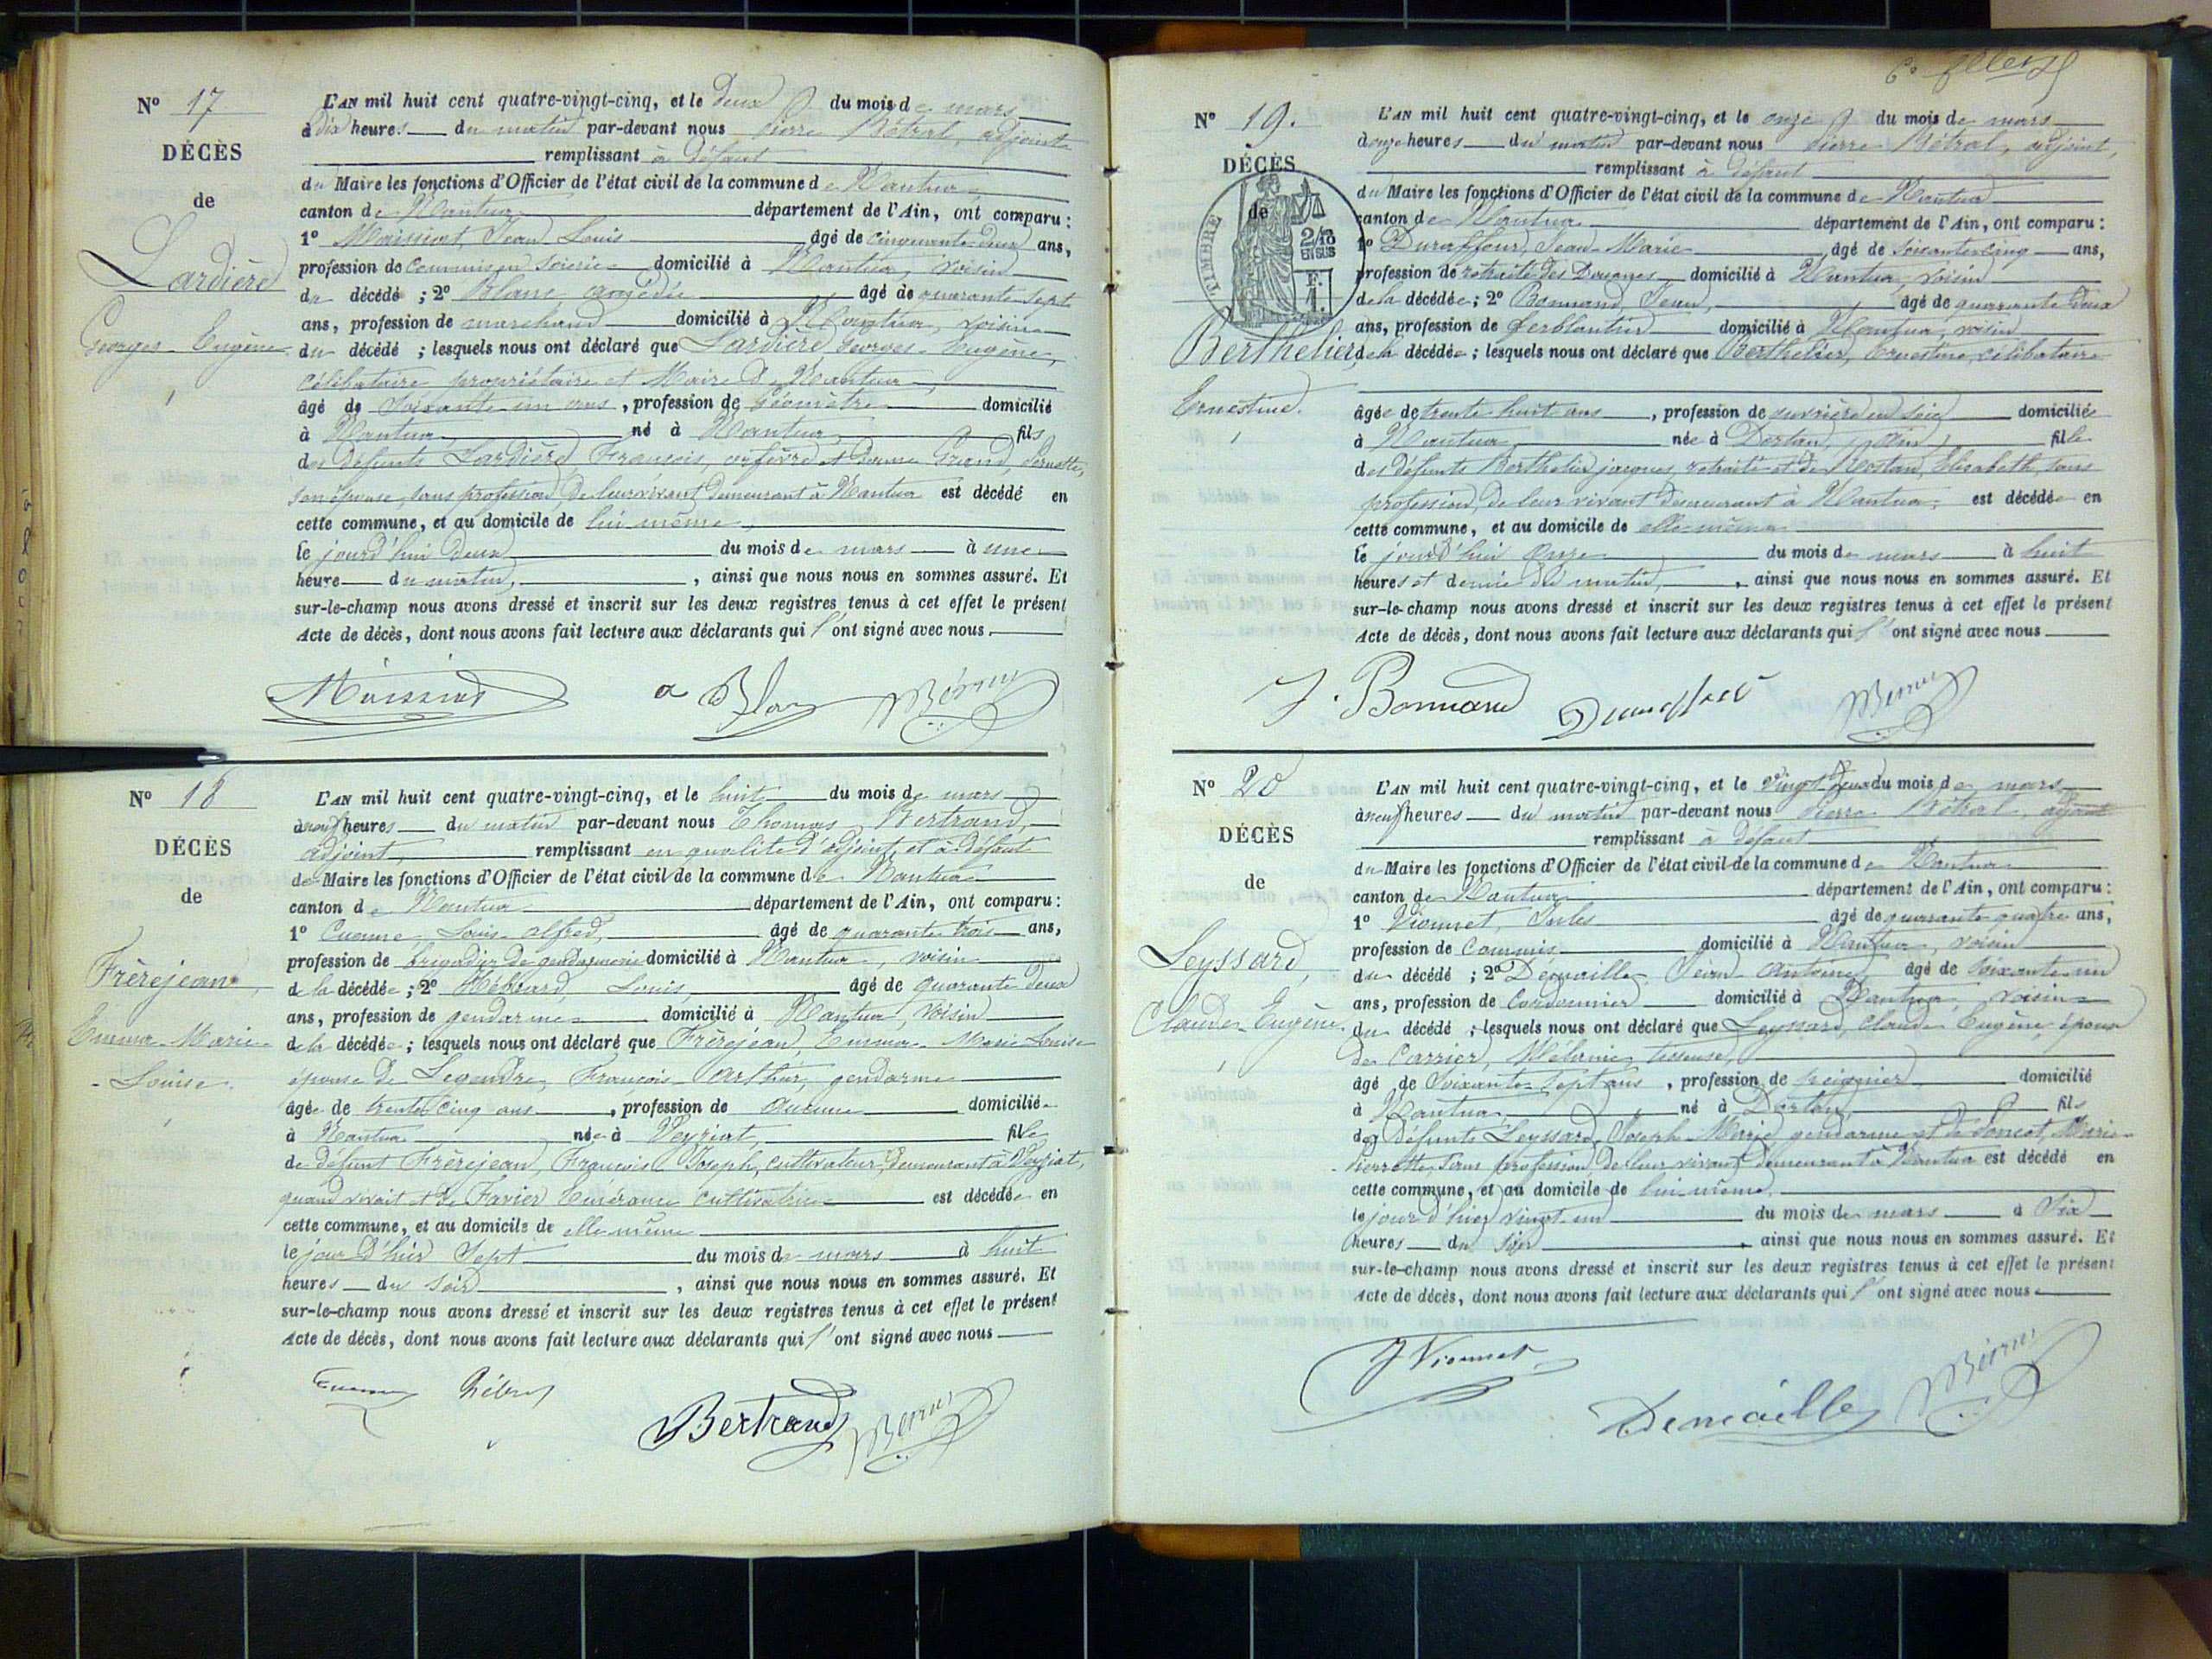 N° 17
DÉCÈS
de
Lardière
Georges Eugène
L'AN mil huit cent quatre-vingt-cinq, et le deux du mois de mars
à dix heures du matin par-devant nous Pierre Bétral, adjoint
remplissant à défaut
du Maire les fonctions d'Officier de l'état civil de la commune de Nantua
canton de Nantua département de l'Ain, ont comparu :
1° Maissiat, Jean Louis âgé de cinquante deux ans,
profession de commis en soierie domicilié à Nantua, voisin
du décédé ; 2° Blanc, amédée âgé de quarante-sept
ans, profession de marchand domicilié à Nantua, voisin
du décédé ; lesquels nous ont déclaré que Lardière Georges-Eugène,
célibataire propriétaire et Maire de Nantua,
âgé de soixante-un ans, profession de géomètre domicilié
à Nantua, né à Nantua, fils
des défunts Lardière, François, orfèvre et dame Grand, Pernette,
son épouse, sans profession, de leur vivant demeurant à Nantua est décédé en
cette commune, et au domicile de lui même,
le jourd'hui deux du mois de mars à une
heure du matin, , ainsi que nous nous en sommes assuré. Et
sur-le-champ nous avons dressé et inscrit sur les deux registres tenus à cet effet le présent
Acte de décès, dont nous avons fait lecture aux déclarants qui l'ont signé avec nous.
Maissiat a Blanc
N° 18
DÉCÈS
de
Frèrejean
Emma-Marie
-Louise.
L'AN mil huit cent quatre-vingt-cinq, et le huit du mois de mars
à neuf heures du matin par-devant nous Thomas Bertrand,
adjoint, remplissant en qualité d'adjoint et à défaut
de Maire les fonctions d'Officier de l'état civil de la commune de Nantua
canton de Nantua département de l'Ain, ont comparu :
1° Louis alfred, âgé de quarante trois ans,
profession de brigadier de gendarmerie domicilié à Nantua, voisin
de la décédée ; 2° Hébrard, Louis, âgé de quarante deux
ans, profession de gendarme domicilié à Nantua, voisin
de la décédée ; lesquels nous ont déclaré que Frèrejean, Emma-Marie Louise
épouse de Legendre, François-Arthur, gendarme
âgée de trente cinq ans, profession de aucune domiciliée
à Nantua née à Veyziat, fille
de défunt Frèrejean, François Joseph, cultivateur, demeurant à Veyziat,
quand vivait et de Favier cultivatrice est décédée en
cette commune, et au domicile de elle-même
le jour d'hier sept du mois de mars à huit
heures du soir , ainsi que nous nous en sommes assuré. Et
sur-le-champ nous avons dressé et inscrit sur les deux registres tenus à cet effet le présent
Acte de décès, dont nous avons fait lecture aux déclarants qui l'ont signé avec nous
Bertrand
N° 19.
DÉCÈS
de
TIMBRE
2/10
EN SUS
F.
1.
Berthelier,
Ernestine.
L'AN mil huit cent quatre-vingt-cinq, et le onze du mois de mars
à onze heures du matin par-devant nous Pierre Bétral, adjoint,
remplissant à défaut
du Maire les fonctions d'Officier de l'état civil de la commune de Nantua
canton de Nantua département de l'Ain, ont comparu :
1° Duraffour, Jean-Marie âgé de soixante-cinq ans,
profession de retraité des Douanes domicilié à Nantua, voisin
de la décédée ; 2° Bonnand, Jean, âgé de quarante deux
ans, profession de ferblantier domicilié à Nantua, voisin
de la décédée ; lesquels nous ont déclaré que Berthelier, Ernestine, célibataire
âgée de trente-huit ans, profession de ouvrière en soie domiciliée
à Nantua, née à Dortan, (Ain), fille
des défunts Berthelier jacques, retraité et de Elisabeth, sans
profession, de leur vivant demeurant à Nantua, est décédée en
cette commune, et au domicile de elle-même
le jourd'hui onze du mois de mars à huit
heures et demie du matin, , ainsi que nous nous en sommes assuré. Et
sur-le-champ nous avons dressé et inscrit sur les deux registres tenus à cet effet le présent
Acte de décès, dont nous avons fait lecture aux déclarants qui l'ont signé avec nous
J. Bonnand Duraffour
N° 20
DÉCÈS
de
Leyssard,
Claude-Eugène.
L'AN mil huit cent quatre-vingt-cinq, et le vingt deux du mois de mars
à neuf heures du matin par-devant nous Pierre Bétral, adjoint
remplissant à défaut
du Maire les fonctions d'Officier de l'état civil de la commune de Nantua
canton de Nantua département de l'Ain, ont comparu :
1° Vionnet, Jules âgé de quarante quatre ans,
profession de commis domicilié à Nantua, voisin
du décédé ; 2° Demaille, Jean-Antoine, âgé de soixante-un
ans, profession de cordonnier domicilié à Nantua, voisin
du décédé ; lesquels nous ont déclaré que Leyssard, Claude Eugène, époux
de Carrier, Mélanie, tisseuse,
âgé de soixante-sept ans, profession de peignier domicilié
à Nantua, né à Dortan, fils
des défunts Leyssard, Joseph-Marie, gendarme, et de Marie-
Pierrette sans profession, de leur vivant demeurant à Nantua est décédé en
cette commune, et au domicile de lui même.
le jour d'hier vingt-un du mois de mars à six
heures du soir , ainsi que nous nous en sommes assuré. Et
sur-le-champ nous avons dressé et inscrit sur les deux registres tenus à cet effet le présent
Acte de décès, dont nous avons fait lecture aux déclarants qui l'ont signé avec nous
J Vionnet
Demaille